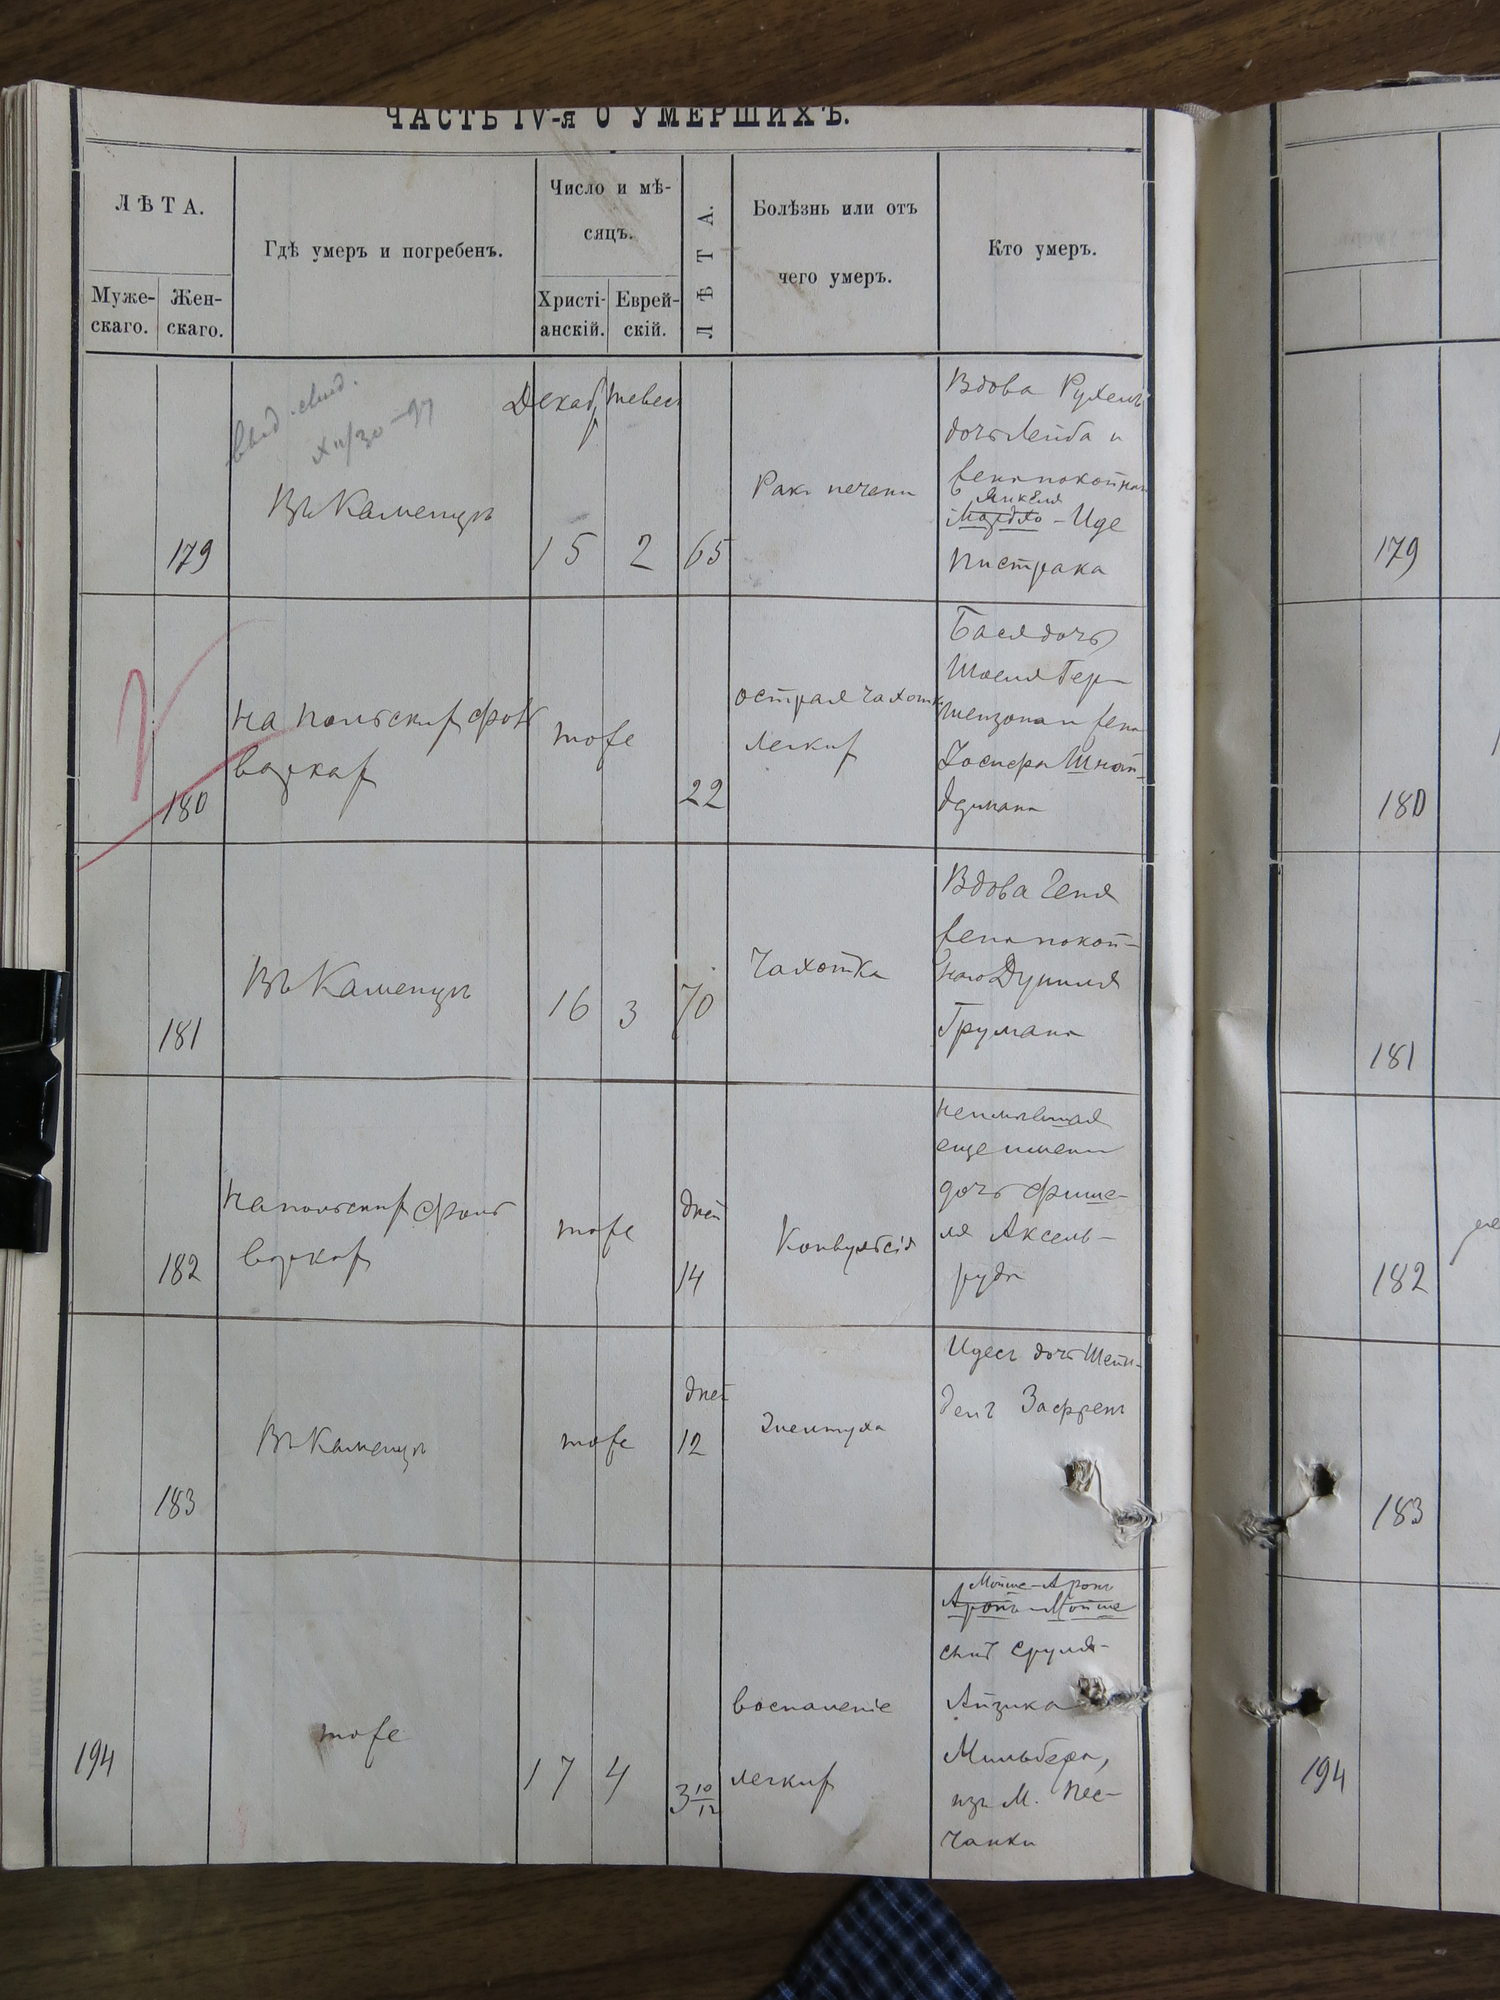 ЧАСТЬ IV-я О УМЕРШИХЪ.
ЛѢТА.
Мужескаго.
Женскаго.
Гдѣ умеръ и погребенъ.
Число и мѣ-
сяцъ.
Христі-
анскій.
Еврей-
скій.
ЛѢТА.
Болѣзнь или отъ
чего умеръ.
Кто умеръ.
выд. свид.
XII/30 -97
179
Въ Каменцѣ
Декаб
тевес
15
2
65
Ракъ печени
Вдова Рухель
дочь Лейба и
жена покойнаго
Янкеля
Мордко - Иде
Пистрака
179
180
на польских фоль
варках
тоже
22
острая чахотка
легких
Бася дочь
Шоеля Гер-
шензона и жена
Іосифа Шнай-
дермана
180
181
Въ Каменцѣ
16
3
70
Чахотка
Вдова Геня
жена покой-
наго Дувиля
Грумана
181
182
на польских фоль
варках
тоже
дней
14
Конвульсія
неимѣвшая
еще имени
дочь Фише-
ля Аксель-
руда
182
183
Въ Каменцѣ
тоже
дней
12
Идесъ дочь Шейн-
дель Заффрен
183
194
тоже
17
4
3 10/12
воспаленіе
легких
Мойше-Аронъ
Аронъ-Мойше
сынъ Сруля-
Айзика
Мильбера,
изъ м. Пес-
чанки
194